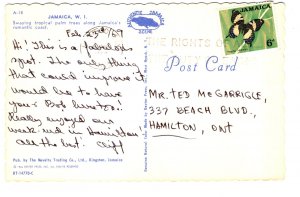 A-16
JAMAICA, W. I.
Swaying tropical palm trees along Jamaica's romantic coast.
Feb. 23rd/69
Hi! This is a fabulous
spot. The only thing
that could improve it
would be to have
your Bob here too!
Really enjoyed our
week-end in Hamilton.
All the best. Cliff
Pub. by The Novelty Trading Co., Ltd., Kingston, Jamaica
JAMAICA
6d
THE RIGHTS O
Post Card
MR. TED MCGARRIGLE,
337 BEACH BLVD.,
HAMILTON, ONT